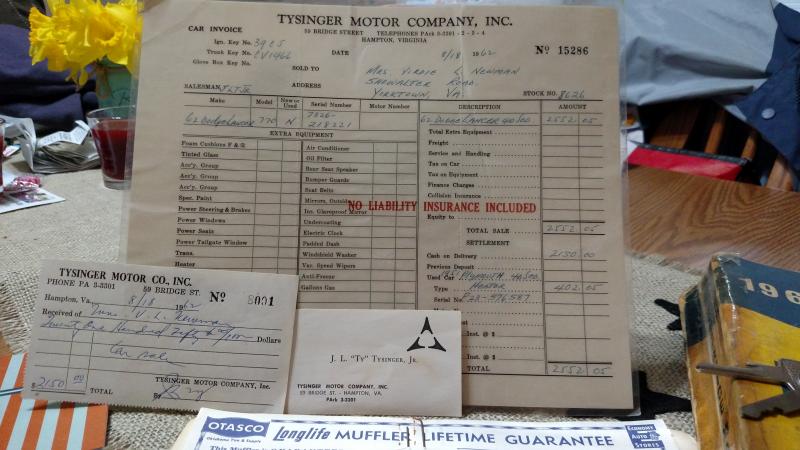 TYSINGER MOTOR COMPANY, INC.
CAR INVOICE
59 BRIDGE STREET TELEPHONES PArk 3-3301 - 2 - 3 - 4
HAMPTON, VIRGINIA
Ign. Key No. 39E5
DATE 8/18 1962
No 15286
Trunk Key No. CV1466
Glove Box Key No.
SOLD TO Mrs. Virdie L Newman
ADDRESS Showalter Road
Yorktown, Va.
SALESMAN JLTJr
STOCK NO. 8626
Make Model New or Used Serial Number Motor Number DESCRIPTION AMOUNT
62 Dodge Lancer 770 N 7226-218221
62 Dodge Lancer 40500 2552 05
EXTRA EQUIPMENT
Total Extra Equipment
Foam Cushions F & R
Air Conditioner
Freight
Tinted Glass
Oil Filter
Service and Handling
Acc'y. Group
Rear Seat Speaker
Tax on Car
Acc'y. Group
Bumper Guards
Tax on Equipment
Acc'y. Group
Seat Belts
Finance Charges
Spec. Paint
Mirrors, Outside
Collision Insurance
NO LIABILITY INSURANCE INCLUDED
Power Steering & Brakes
Ins. Glareproof Mirror
Equity to
Power Windows
Undercoating
TOTAL SALE 2552 05
Power Seats
Electric Clock
SETTLEMENT
Power Tailgate Window
Padded Dash
Cash on Delivery 2150.00
Trans.
Windshield Washer
Previous Deposit
Heater
Var. Speed Wipers
Used Car Plymouth
Anti-Freeze
Type 402.05
Gallons Gas
Serial No.
Inst. @ $
Inst. @ $
TOTAL 2552 05
TYSINGER MOTOR CO., INC.
PHONE PA 3-3301 59 BRIDGE ST.
Hampton, Va. 8/18 1962 No 8001
Received of Mrs. V. L. Newman
Twenty One Hundred Fifty & 00/100 Dollars
Car sale
$ 2150 00 TOTAL
TYSINGER MOTOR COMPANY, Inc.
By
J. L. "TY" TYSINGER, JR.
TYSINGER MOTOR COMPANY, INC.
59 BRIDGE ST. - HAMPTON, VA.
PArk 3-3301
196
OTASCO
Oklahoma Tire & Supply
Longlife MUFFLER LIFETIME GUARANTEE
ECONOMY AUTO STORES